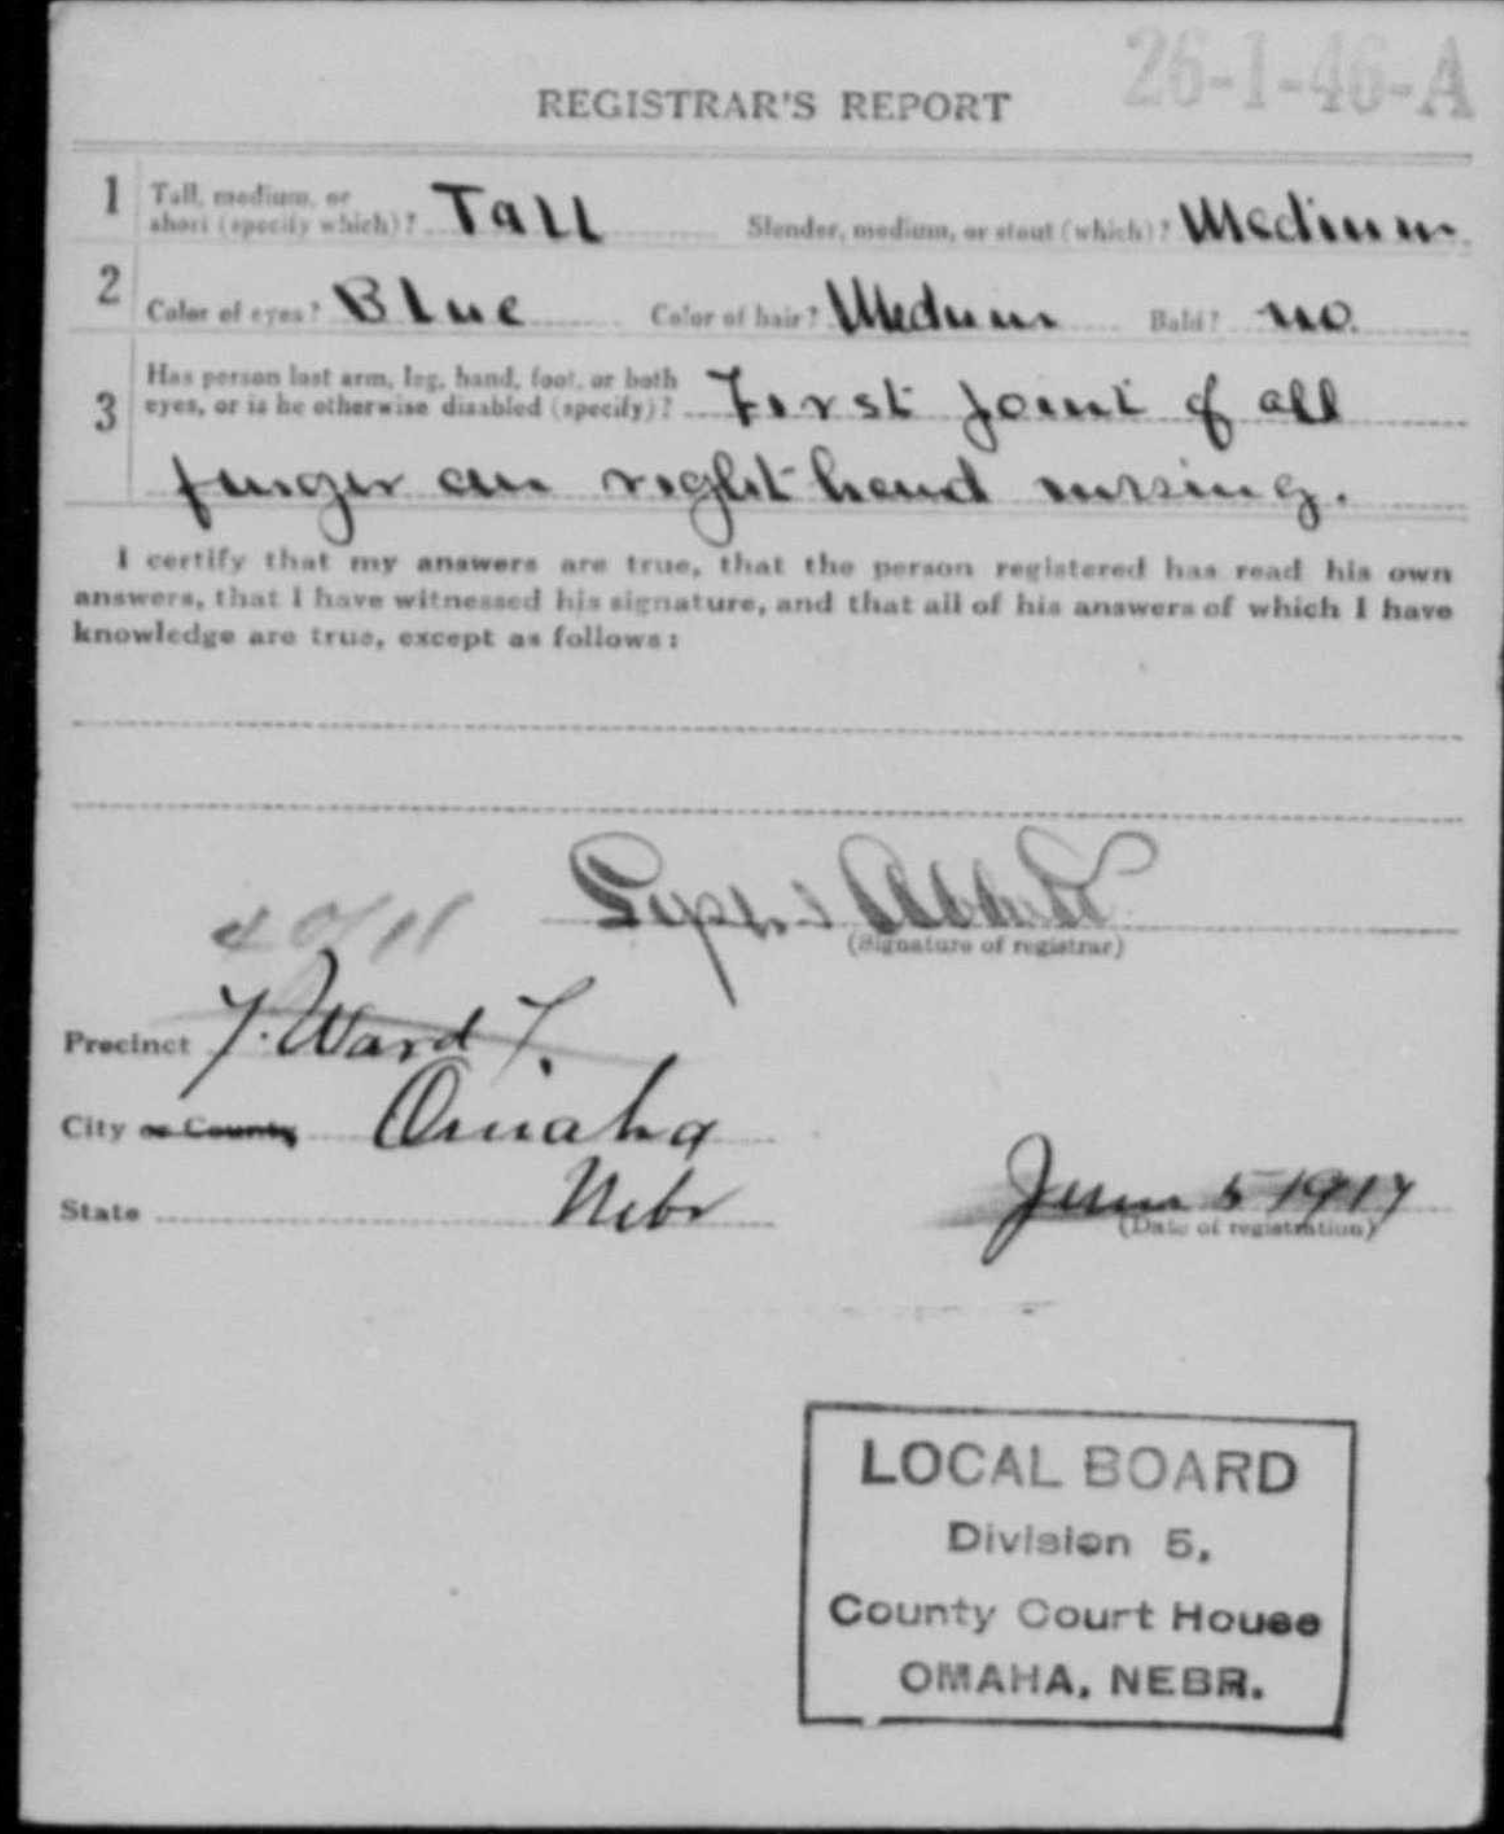 26-1-46-A
REGISTRAR'S REPORT
1 Tall, medium, or short (specify which)? Tall Slender, medium, or stout (which)? Medium
2 Color of eyes? Blue Color of hair? Medium Bald? no.
3 Has person lost arm, leg, hand, foot, or both
eyes, or is he otherwise disabled (specify)? First joint of all
finger on right hand missing.
I certify that my answers are true, that the person registered has read his own
answers, that I have witnessed his signature, and that all of his answers of which I have
knowledge are true, except as follows:
Abbott
(Signature of registrar)
Precinct 7. Ward 7.
City or County Omaha
State Nebr
June 5 1917
(Date of registration)
LOCAL BOARD
Division 5,
County Court House
OMAHA, NEBR.